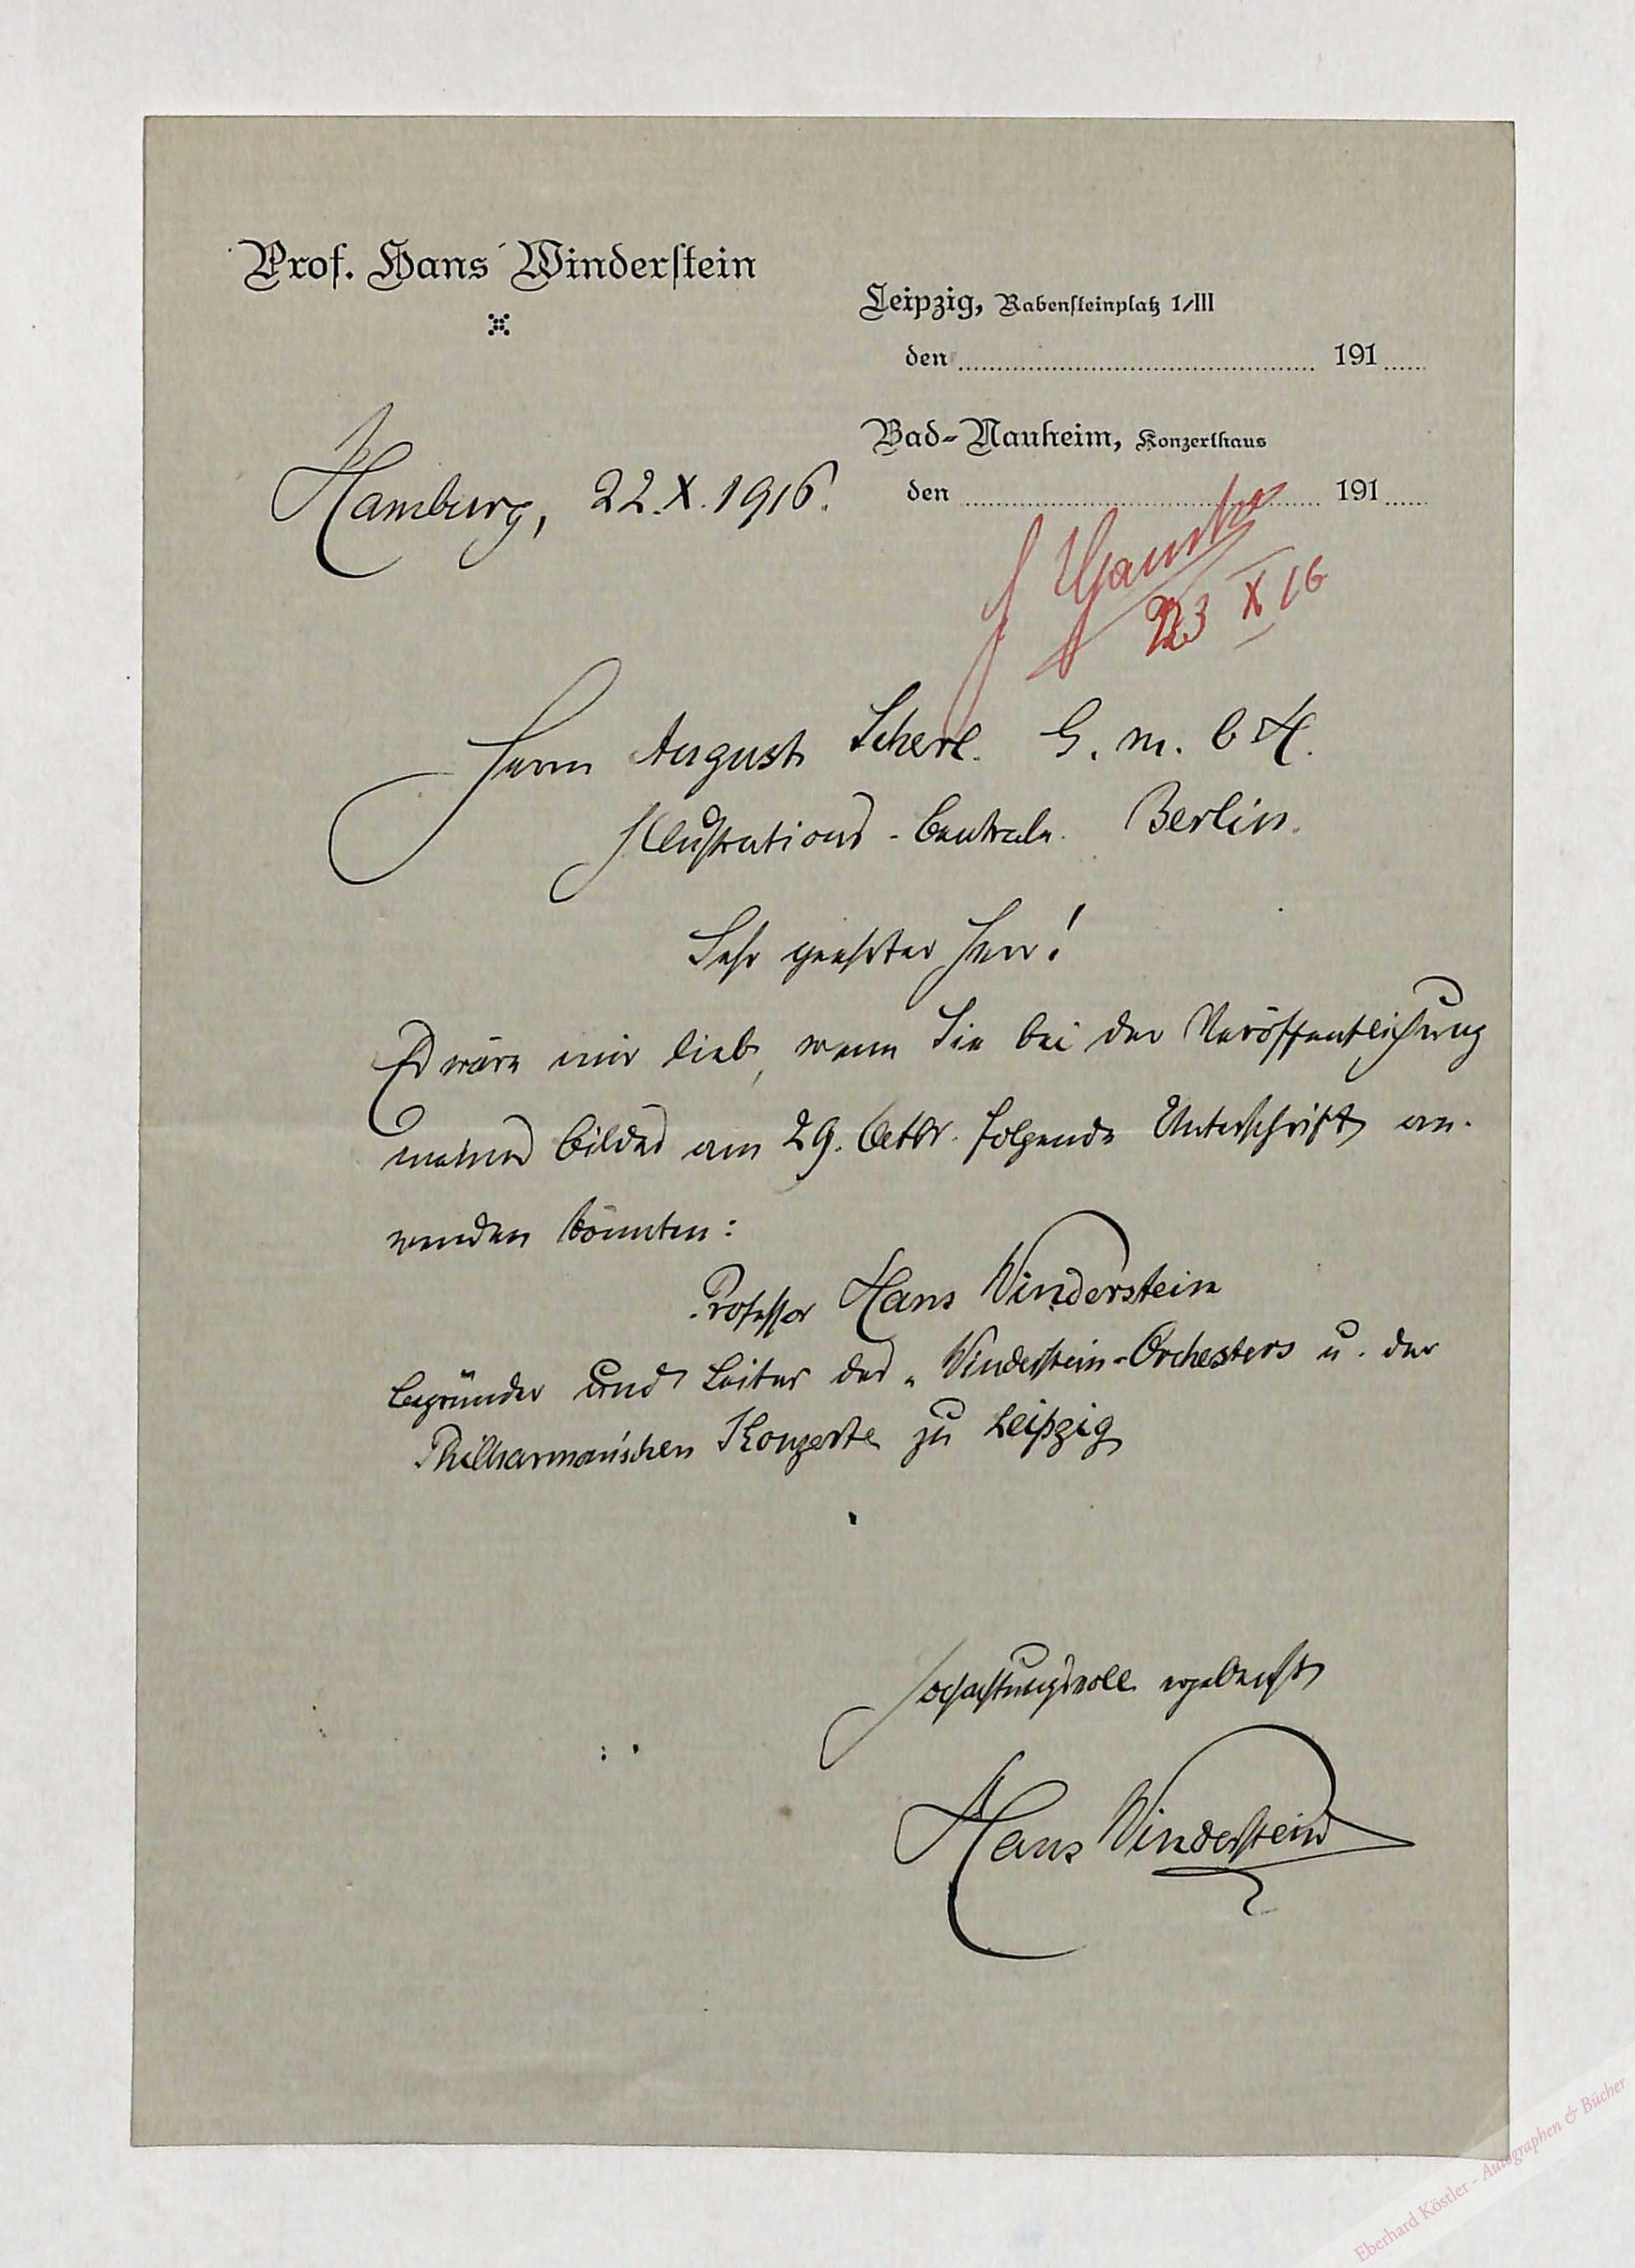 Prof. Hans Winderstein
Leipzig, Rabensteinplatz 1/III
den 191
Bad-Nauheim, Konzerthaus
den 191
Hamburg, 22.X.1916.
23 X 16
Herrn August Scherl. G. m. b H.
Illustrations-Centrale. Berlin.
Sehr geehrter Herr!
Es wäre mir lieb, wenn Sie bei der Veröffentlichung
meines Bildes am 29. Octbr. folgende Unterschrift an-
wenden könnten:
Professor Hans Winderstein
Begründer und Leiter des „Winderstein-Orchesters u. der
Philharmonischen Konzerte zu Leipzig
Hochachtungsvoll ergebenst
Hans Winderstein
Eberhard Köstler - Autographen & Bücher